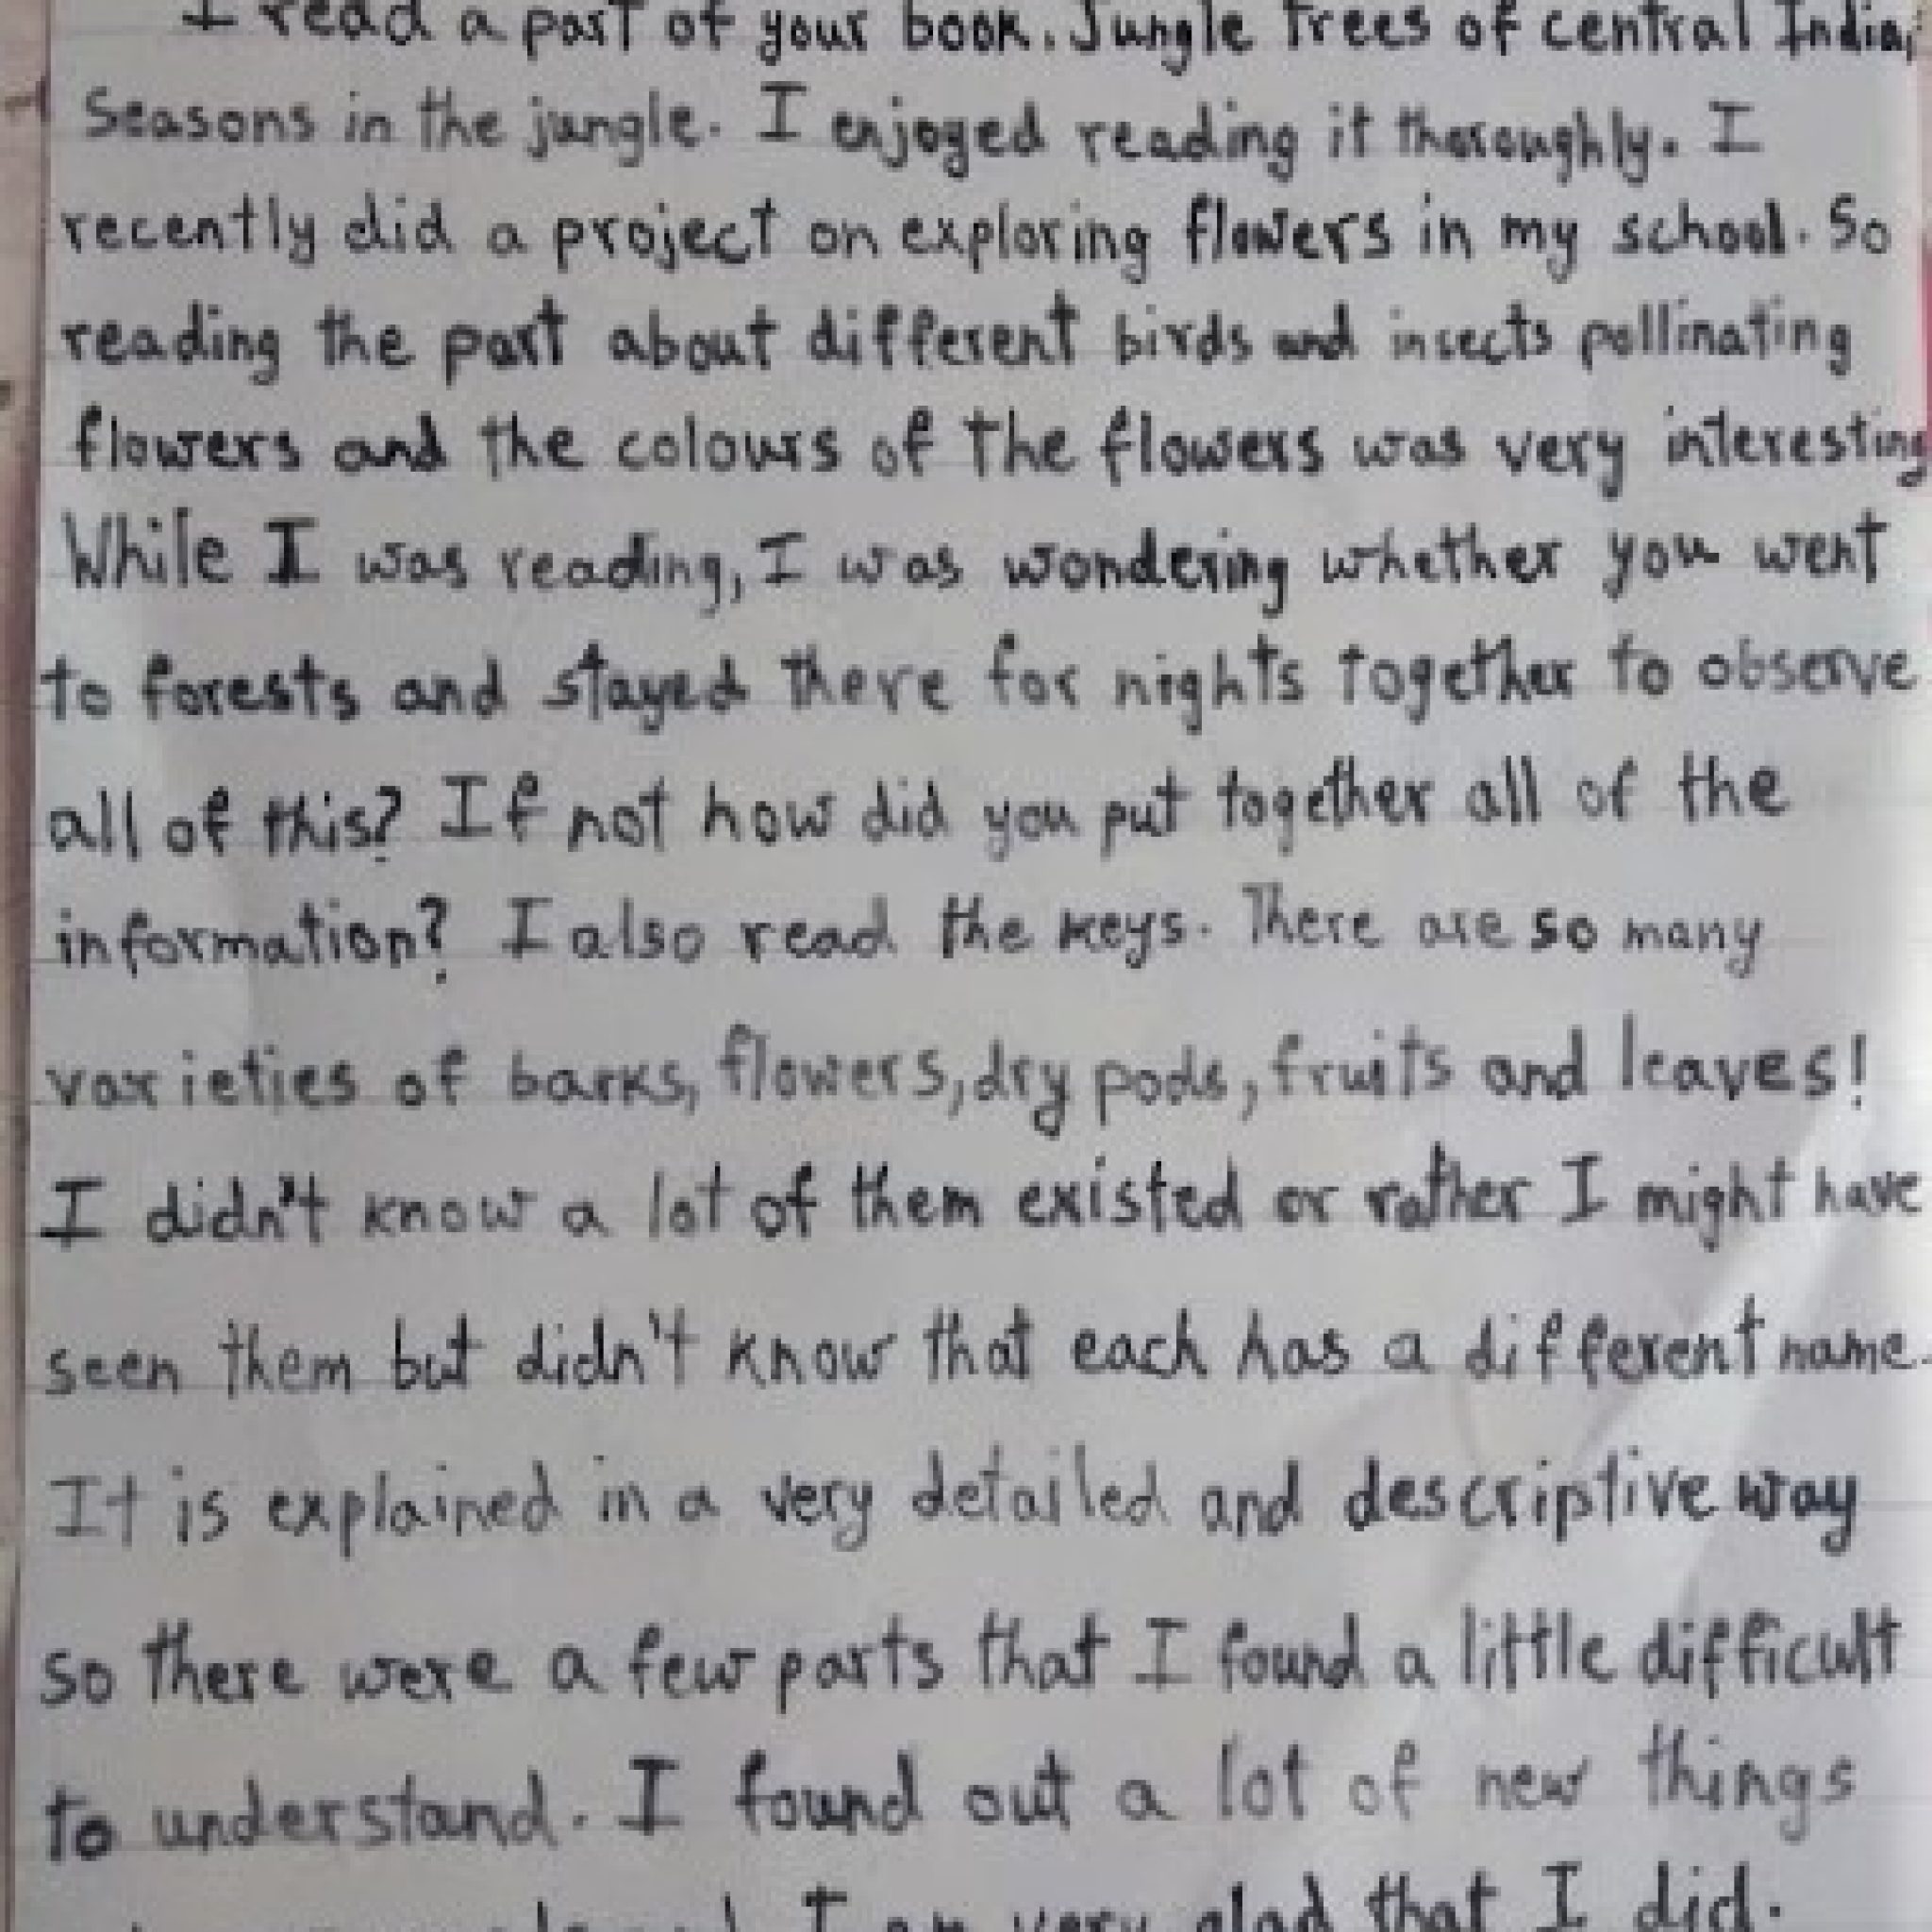 I read a part of your book. Jungle Trees of central India,
Seasons in the jungle. I enjoyed reading it thoroughly. I
recently did a project on exploring flowers in my school. So
reading the part about different birds and insects pollinating
flowers and the colours of the flowers was very interesting
While I was reading, I was wondering whether you went
to forests and stayed there for nights together to observe
all of this? If not how did you put together all of the
information? I also read the keys. There are so many
varieties of barks, flowers, dry pods, fruits and leaves!
I didn't know a lot of them existed or rather I might have
seen them but didn't know that each has a different name.
It is explained in a very detailed and descriptive way
so there were a few parts that I found a little difficult
to understand. I found out a lot of new things
I am very glad that I did.